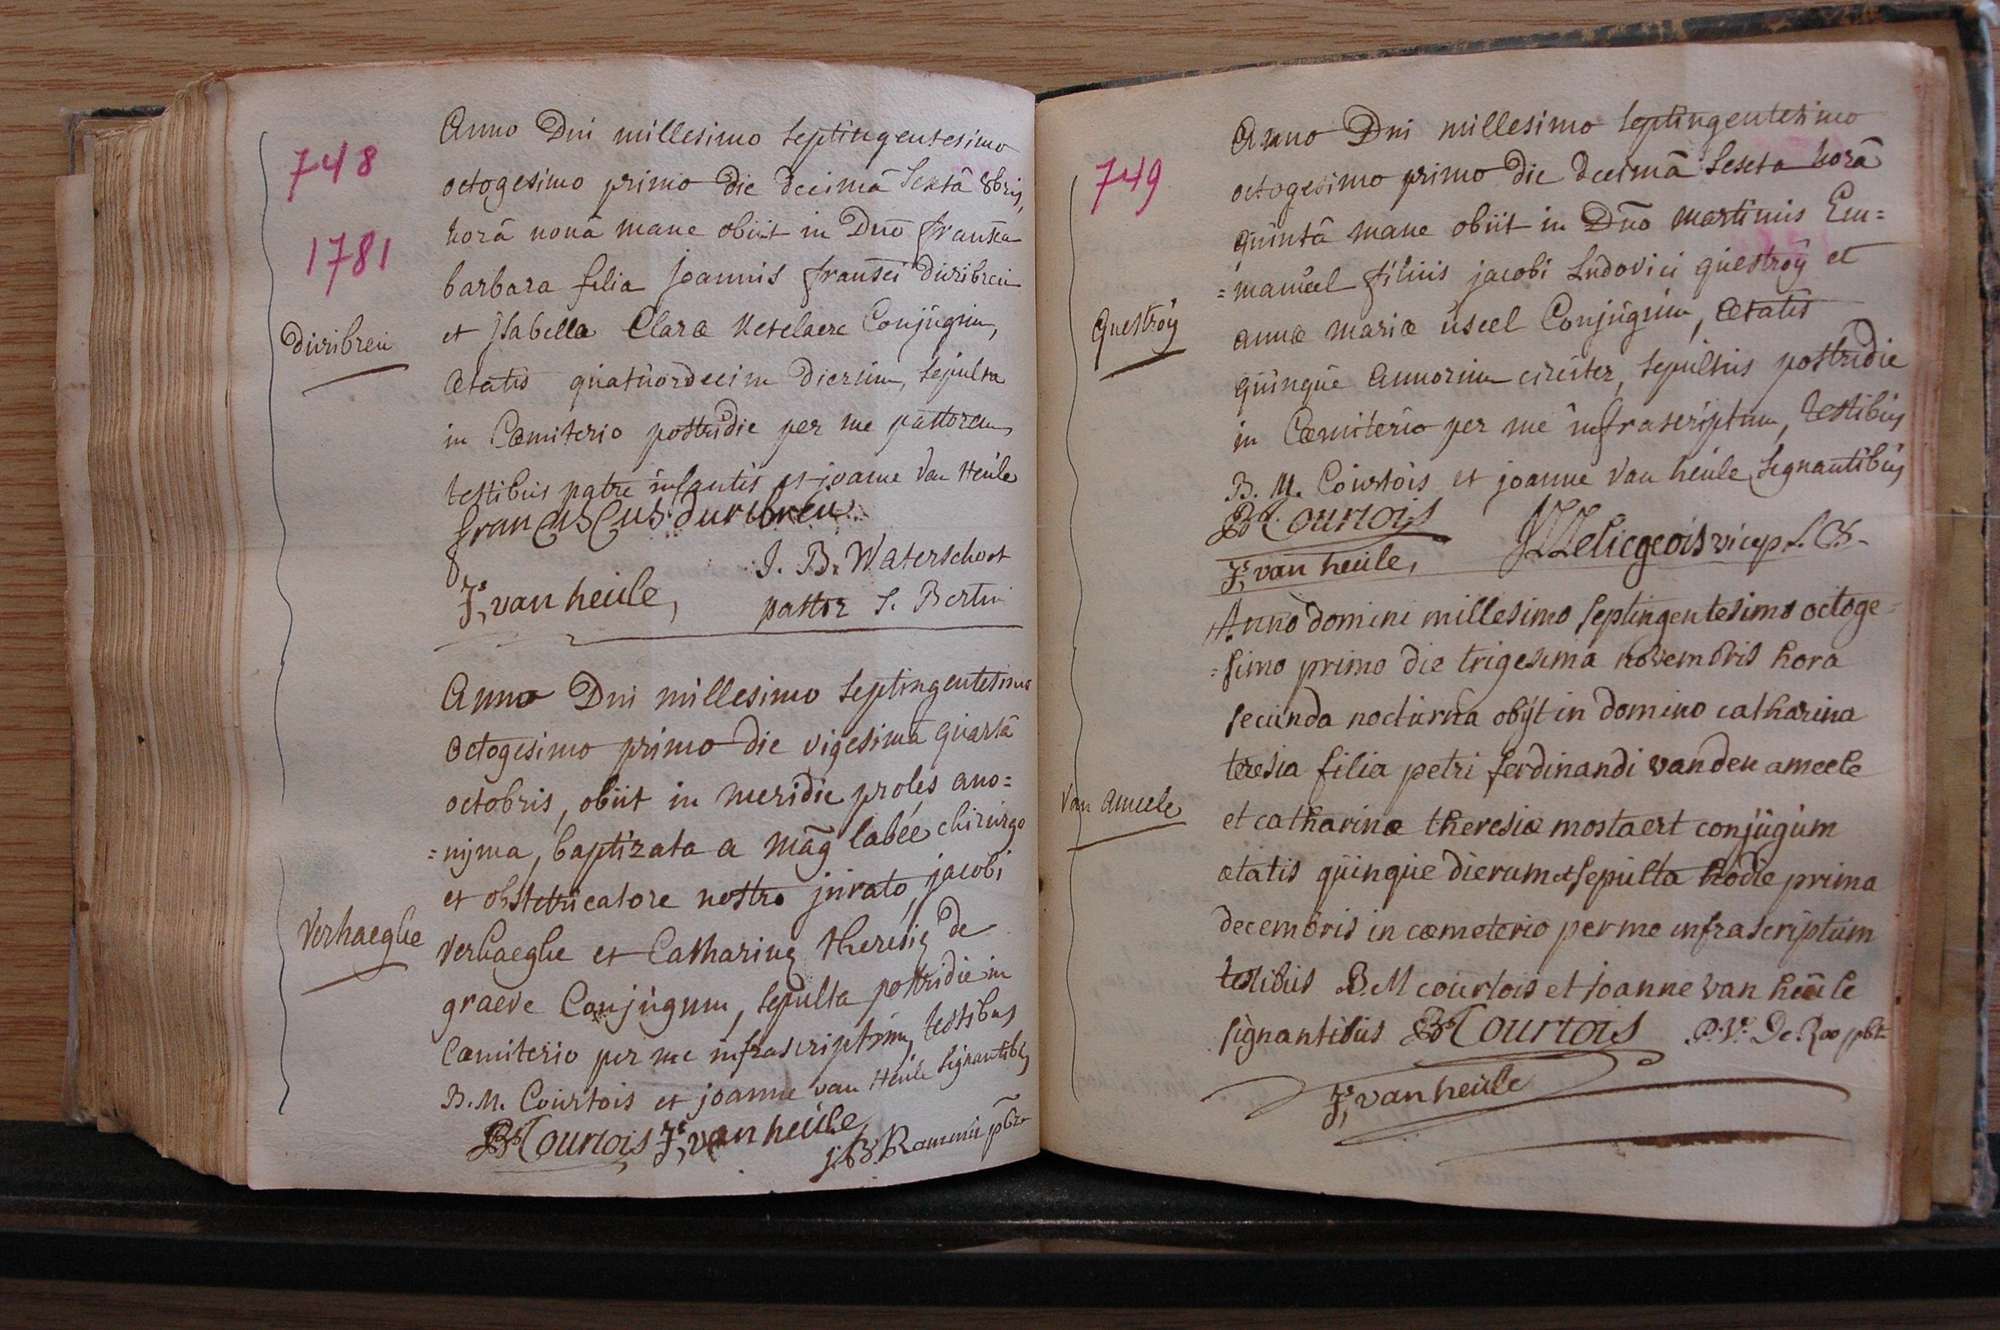 748
1781
Anno Dni millesimo Septingentesimo
octogesimo primo die decimâ Sextâ 8bris,
horâ nonâ mane obiit in Dno
barbara filia Joannis
et Isabella Clara Ketelaere Conjugum,
Ætatis quatuordecim dierum, Sepulta
in Cæmiterio postridie per me pastorem,
testibus patre infantis et joanne Van Heule
Franciscus duribreu
J. B. Waterschoot
Js, van heule,
pastor S. Bertini
Anno Dni millesimo Septingentesimo
Octogesimo primo die vigesimâ quartâ
octobris, obiit in meridie proles ano=
=nijma, baptizata a Mãg labée chirurgo
et obstetricatore nostro jurato, jacobi
Verhaeghe
Verhaeghe et Catharinæ theresiæ de
graeve Conjugum, Sepulta postridie in
Cæmiterio per me infrascriptum, testibus
B. M. Courtois et joanne van Heule Signantibus
BM Courtois Js, van heule
749
Anno Dni millesimo Septingentesimo
octogesimo primo die decimâ Sexta horâ
quintâ mane obiit in Dno Martinus Em=
=manuel filius jacobi Ludovici questroÿ et
Questroÿ
annæ mariæ useel Conjugum, Ætatis
quinque Annorum circiter, Sepultus postridie
in Cæmiterio per me infrascriptum, testibus
B. M. Courtois et joanne Van heule Signantibus
BM Courtois
Js, van heule,
Anno domini millesimo Septingentesimo octoge=
=simo primo die trigesima novembris hora
secunda nocturna obÿt in domino catharina
teresia filia petri ferdinandi vanden ameele
Van Ameele
et catharinæ theresiæ mostaert conjugum
ætatis quinque dierum et sepulta hodie prima
decembris in cœmeterio per me infrascriptum
testibus B M courtois et joanne van heule
signantibus BM Courtois P. V. De Roo pbt
Js, van heule